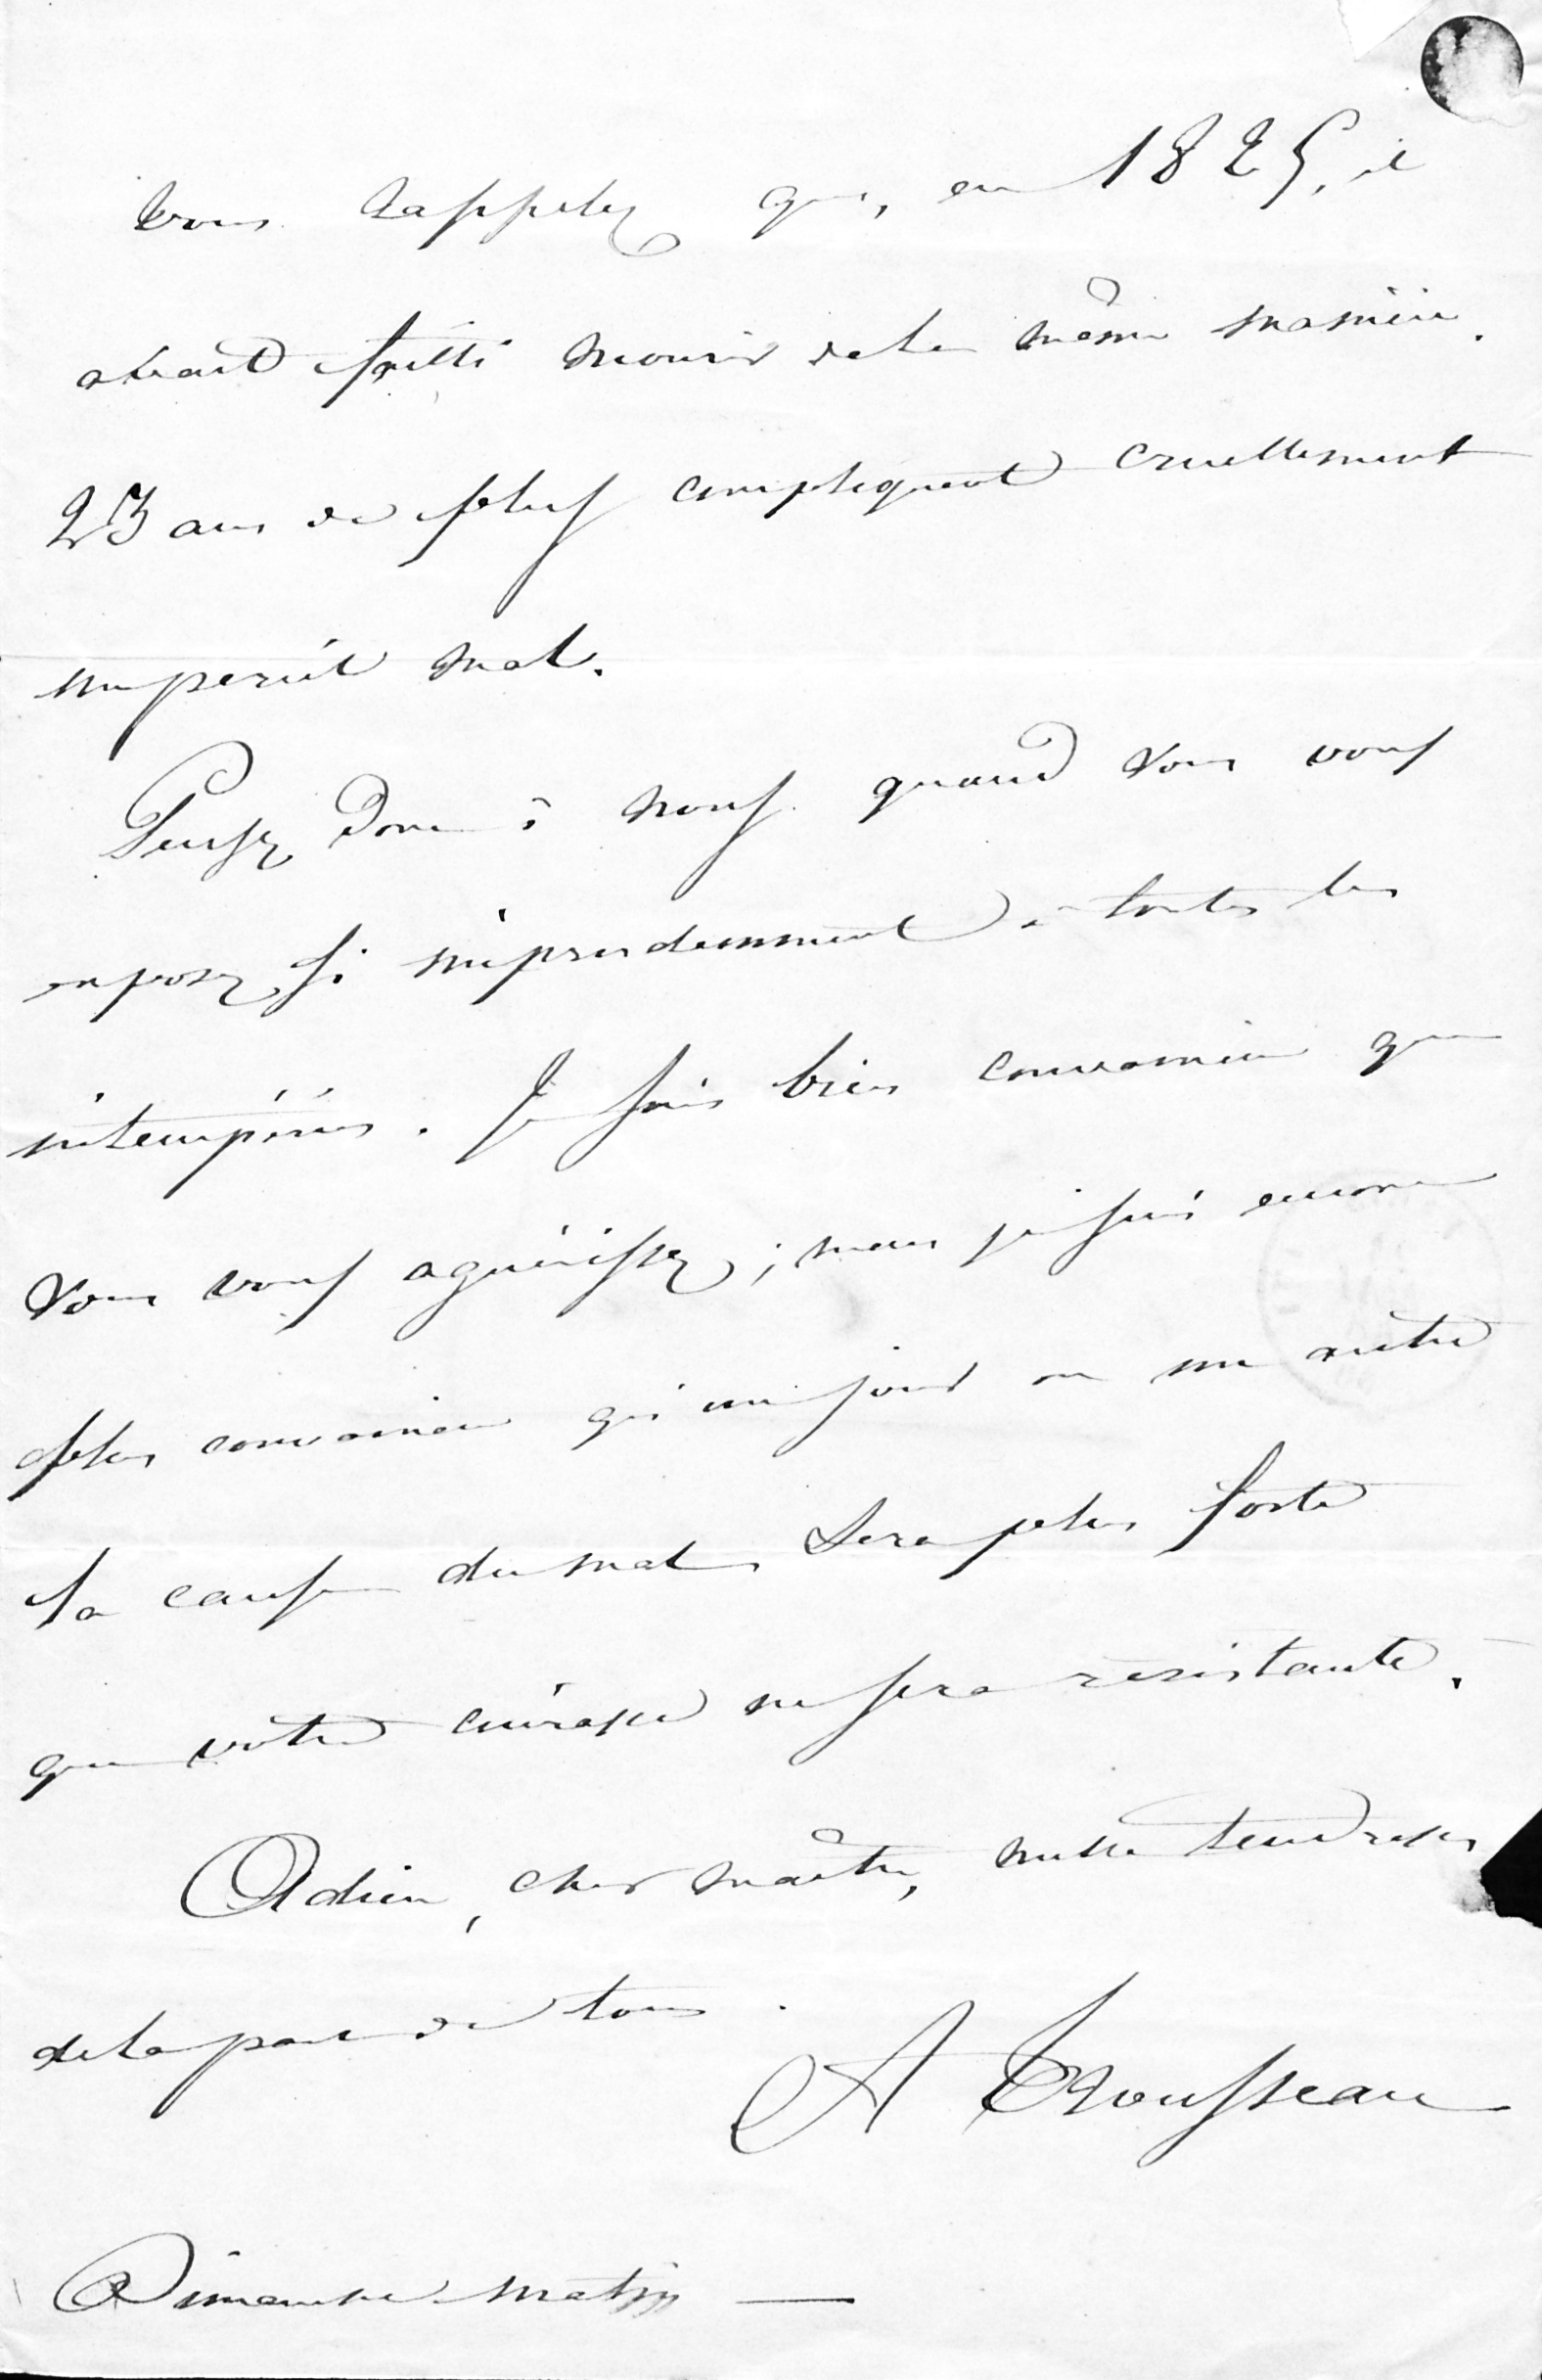 vous rappelez que, en 1825, il
avait failli mourir de la même manière.
23 ans de plus compliquent cruellement
un pareil mal.
Pensez donc à nous quand vous vous
exposez si imprudemment à toutes les
intempéries. Je suis bien convaincu que
vous vous aguérissez ; mais je suis encore
plus convaincu qu'un jour ou un autre
la cause du mal sera plus forte
que votre cuirasse ne sera résistante.
Adieu, cher maître, mille tendresses
de la part de tous.
A Trousseau
Dimanche matin —